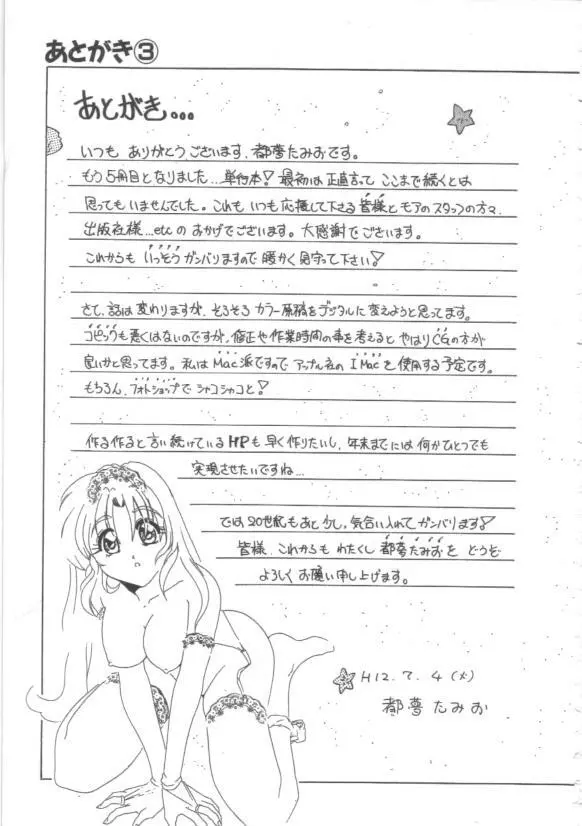 あとがき③
あとがき…
いつも ありがとうございます、都夢たみおです。
もう5冊目となりました…単行本! 最初は正直言って ここまで続くとは
思ってもいませんでした。これも いつも応援して下さる 皆様と モアの スタッフの方々、
出版社様…etcの おかげでございます。大感謝でございます。
これからも いっそう ガンバリますので 暖かく 見守って下さい!
さて、話は変わりますが、そろそろ カラー原稿をデジタルに変えようと思ってます。
コピックも悪くはないのですが、修正や作業時間の事を考えると やはりCGの方が
良いかと思ってます。私は Mac派ですので アップル社の IMacを使用する予定です。
もちろん、フォトショップで シャコシャコと!
作る作ると言い続けている HPも 早く作りたいし、年末までには 何かひとつでも
実現させたいですね…
では 20世紀もあと少し、気合い入れて ガンバります!
皆様、これからも わたくし 都夢たみおを どうぞ
よろしく お願い申し上げます。
H12.7.4(火)
都夢たみお